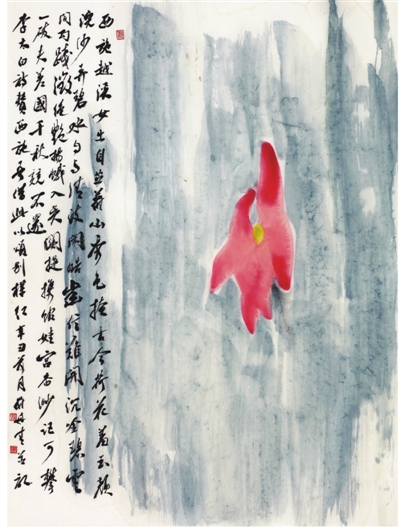 西施越溪女出自苎萝山秀色掩古今荷花羞玉颜
浣沙弄碧水自与清波闲皓齿信难开沉吟碧云
间勾践徵绝艳扬蛾入吴关提携馆娃宫杳渺讵可攀
一破夫差国千秋竟不还
李太白诗赞西施吾借此以颂别样红辛丑荷月